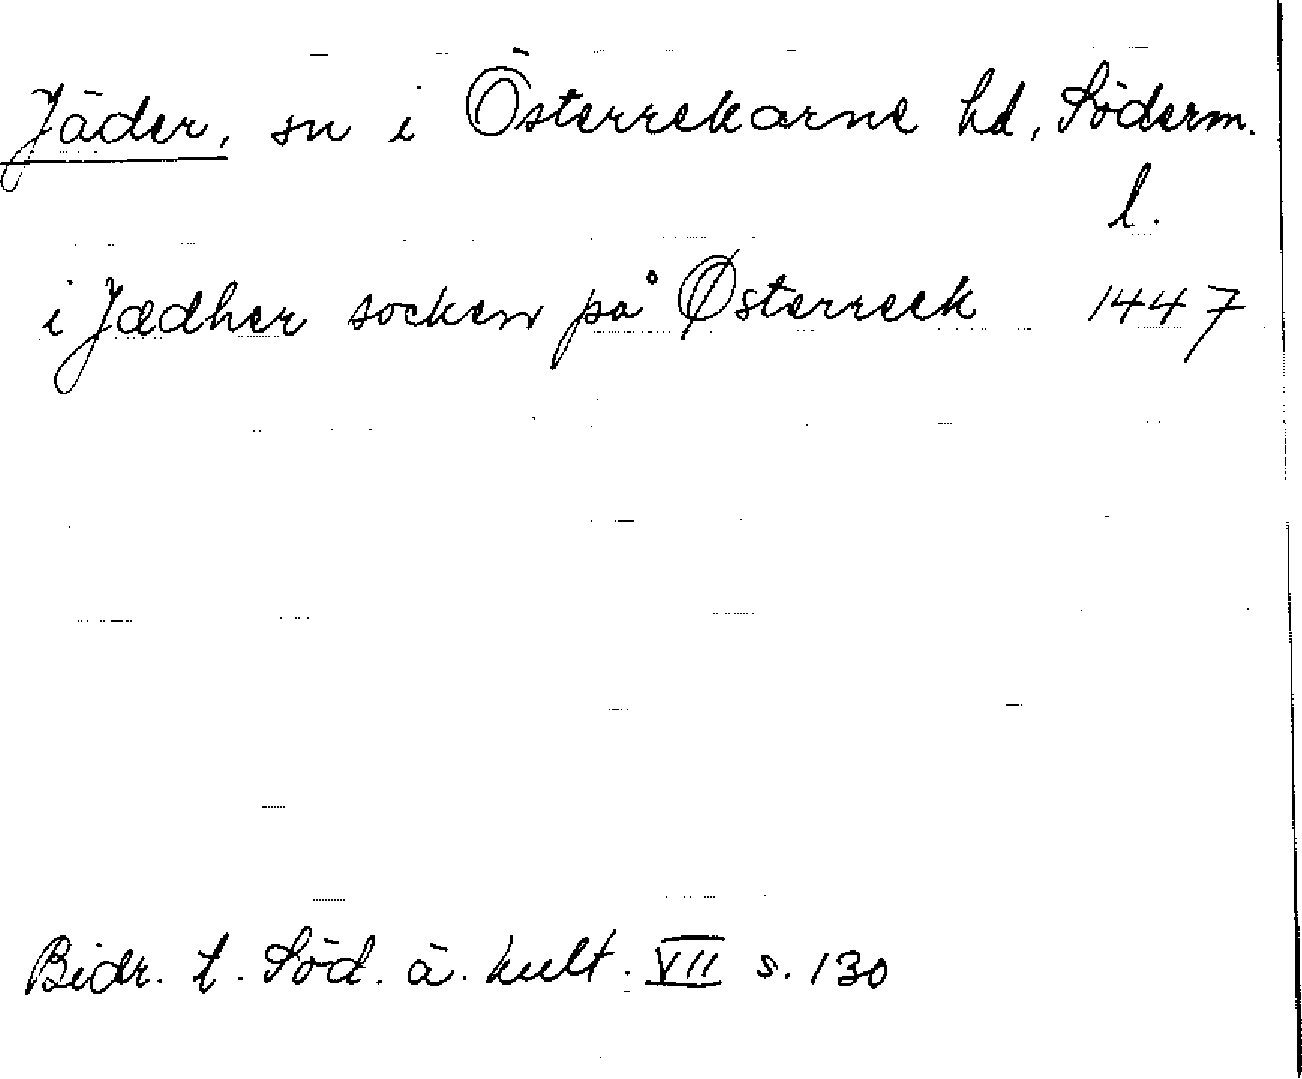 Jäder, sn i Österrekarne hd, Söderm.
l.
i Jædher socken på Østerreek 1447
Bidr. t. Söd. ä. kult. VII s. 130